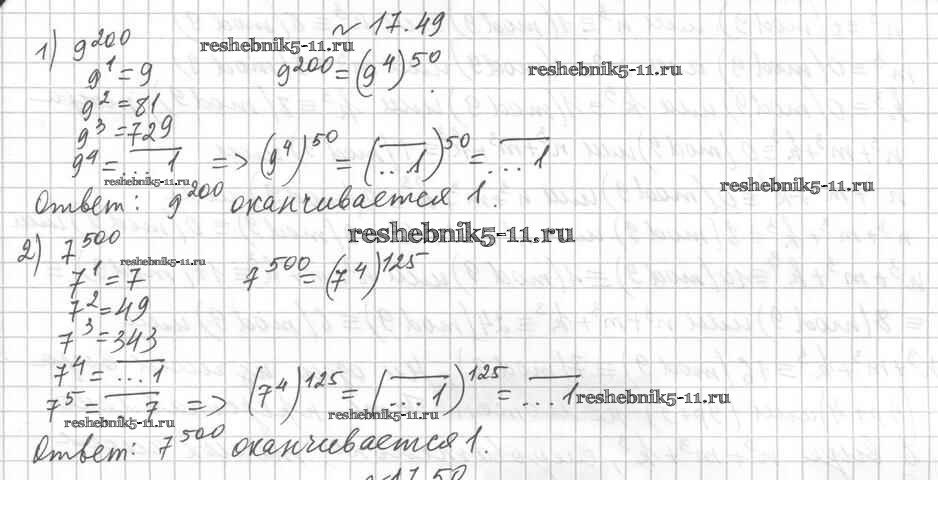 № 17.49
1) 9^200
reshebnik5-11.ru
9^1 = 9
9^200 = (9^4)^50.
reshebnik5-11.ru
9^2 = 81
9^3 = 729
9^4 = ...1 => (9^4)^50 = (...1)^50 = ...1
reshebnik5-11.ru
reshebnik5-11.ru
Ответ: 9^200 оканчивается 1.
reshebnik5-11.ru
2) 7^500
reshebnik5-11.ru
7^1 = 7
7^500 = (7^4)^125
7^2 = 49
7^3 = 343
7^4 = ...1
7^5 = ...7 => (7^4)^125 = (...1)^125 = ...1
reshebnik5-11.ru
reshebnik5-11.ru
reshebnik5-11.ru
Ответ: 7^500 оканчивается 1.
№ 17.50